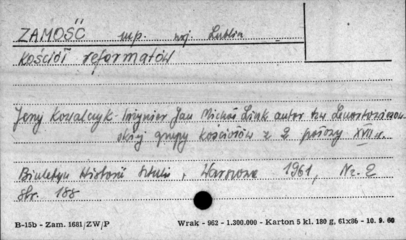 ZAMOŚĆ mp. woj. Lublin
Kościół reformatów
Jerzy Kowalczyk - Inżynier Jan Michał Link autor tzw
grupy kościołów z 2 połowy XVII w.
Biuletyn Historii Sztuki, Warszawa 1961, Nr. 2
Str. 188
B-15b - Zam. 1681/ZW/P Wrak - 962 - 1.300.000 - Karton 5 kl. 180 g, 61x86 - 10. 9. 60